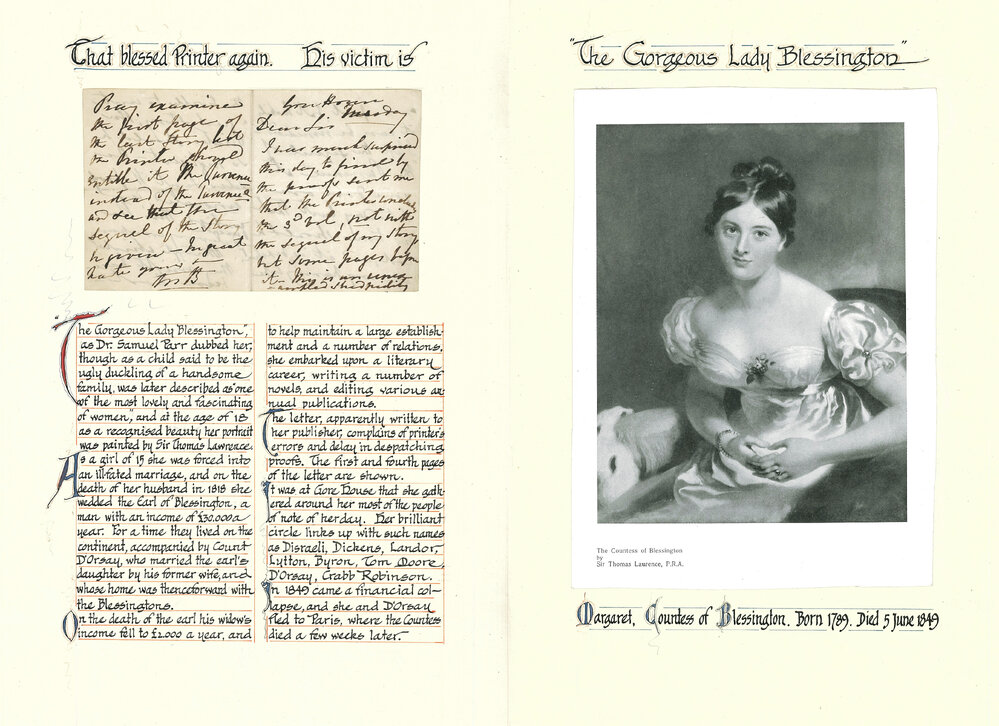 That blessed Printer again. His victim is
Pray examine
the first page of
the last story lest
the Printer should
entitle it the
instead of the
and see that the
sequel of the Story
is given — In great
haste yours
MB
Gore House
Tuesday
Dear Sir
I was much surprised
this day to find by
the proofs sent me
that the Printer
the 3d vol, not with
the sequel of my story
but some pages before
it. This is an
stupidity
The Gorgeous Lady Blessington",
as Dr. Samuel Parr dubbed her,
though as a child said to be the
ugly duckling of a handsome
family, was later described as "one
of the most lovely and fascinating
of women," and at the age of 18
as a recognised beauty her portrait
was painted by Sir Thomas Lawrence.
As a girl of 15 she was forced into
an ill-fated marriage, and on the
death of her husband in 1818 she
wedded the Earl of Blessington, a
man with an income of £30,000 a
year. For a time they lived on the
continent, accompanied by Count
D'Orsay, who married the earl's
daughter by his former wife, and
whose home was thenceforward with
the Blessingtons.
On the death of the earl his widow's
income fell to £2,000 a year, and
to help maintain a large establish-
ment and a number of relations,
she embarked upon a literary
career, writing a number of
novels, and editing various an
nual publications.
The letter, apparently written to
her publisher, complains of printer's
errors and delay in despatching
proofs. The first and fourth pages
of the letter are shown.
It was at Gore House that she gath-
ered around her most of the people
of note of her day. Her brilliant
circle links up with such names
as Disraeli, Dickens, Landor,
Lytton, Byron, Tom Moore,
D'Orsay, Crabb Robinson.
In 1849 came a financial col-
lapse, and she and D'Orsay
fled to Paris, where the Countess
died a few weeks later.
"The Gorgeous Lady Blessington"
The Countess of Blessington
by
Sir Thomas Lawrence, P.R.A.
Margaret, Countess of Blessington. Born 1789. Died 5 June 1849